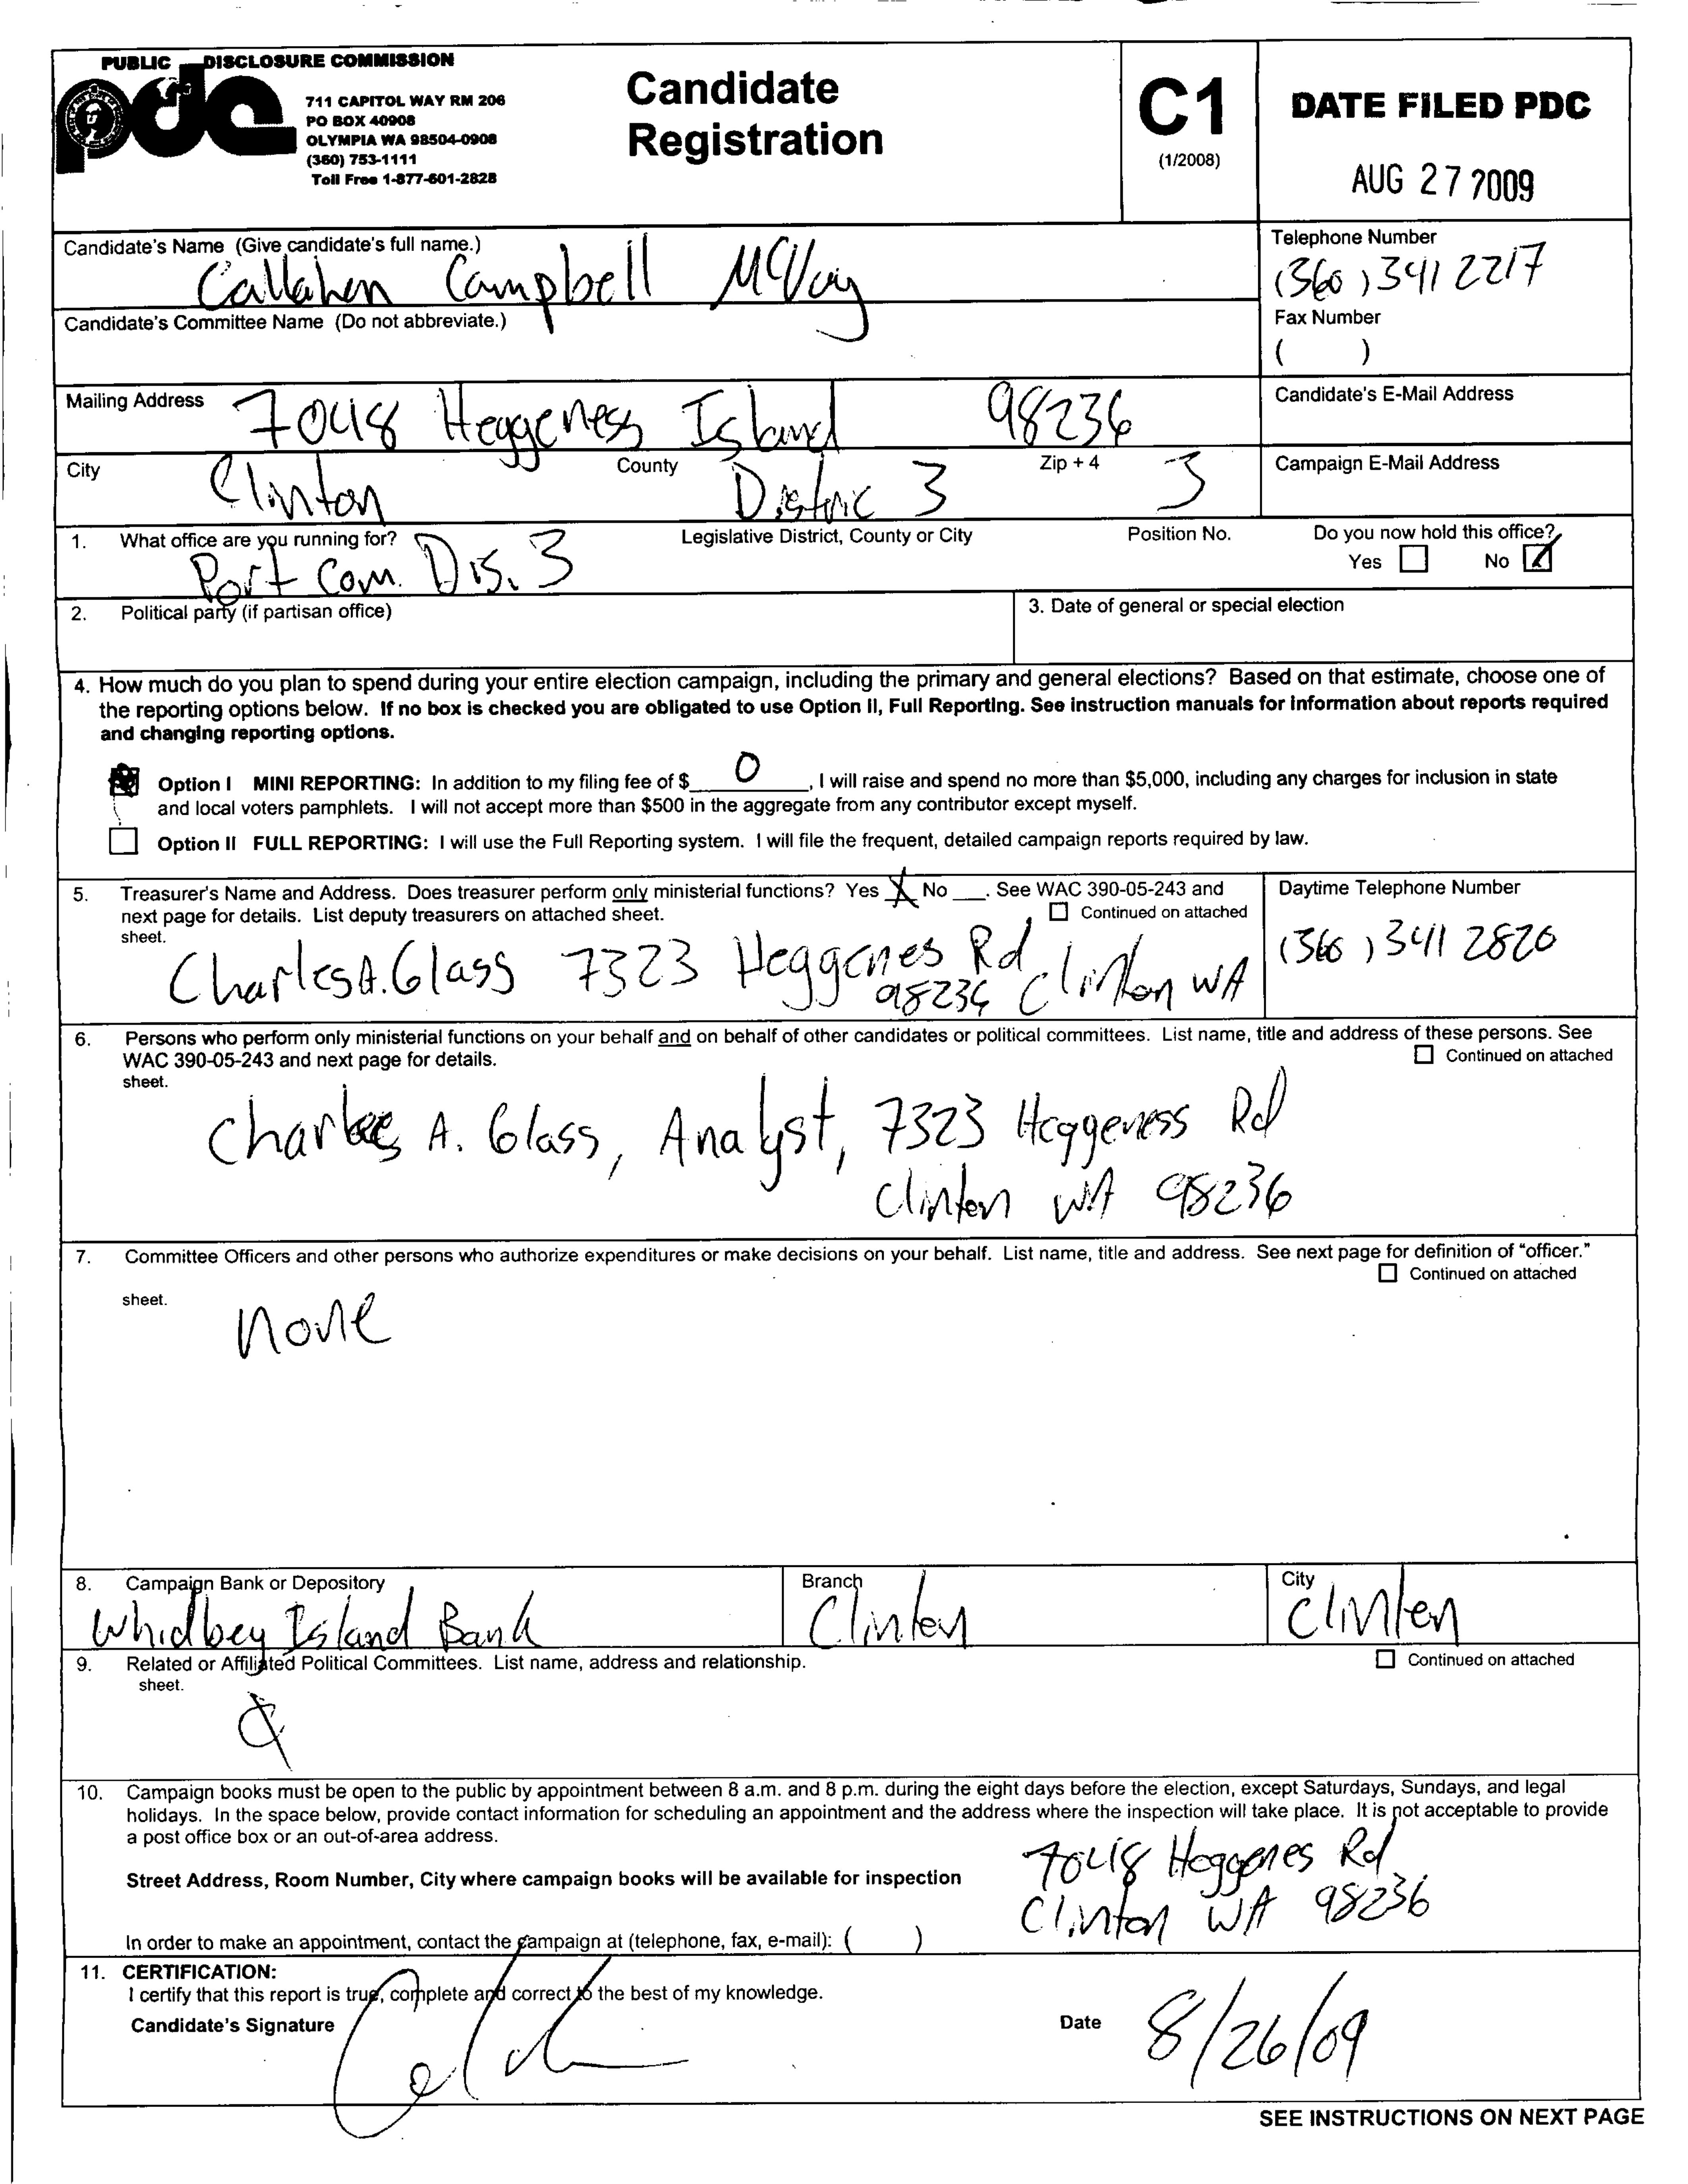 PUBLIC DISCLOSURE COMMISSION
pdc
711 CAPITOL WAY RM 206
PO BOX 40908
OLYMPIA WA 98504-0908
(360) 753-1111
Toll Free 1-877-601-2828
Candidate
Registration
C1
(1/2008)
DATE FILED PDC
AUG 27 2009
Candidate's Name (Give candidate's full name.)
Callahan Campbell McVay
Telephone Number
(360) 341 2217
Candidate's Committee Name (Do not abbreviate.)
Fax Number
( )
Mailing Address
7048 Heggeness Island 98236
Candidate's E-Mail Address
City County Zip + 4
Clinton Distric 3 3
Campaign E-Mail Address
1. What office are you running for? Legislative District, County or City Position No. Do you now hold this office?
Port Com. Dis. 3
Yes No
2. Political party (if partisan office)
3. Date of general or special election
4. How much do you plan to spend during your entire election campaign, including the primary and general elections? Based on that estimate, choose one of
the reporting options below. If no box is checked you are obligated to use Option II, Full Reporting. See instruction manuals for information about reports required
and changing reporting options.
Option I MINI REPORTING: In addition to my filing fee of $ 0 , I will raise and spend no more than $5,000, including any charges for inclusion in state
and local voters pamphlets. I will not accept more than $500 in the aggregate from any contributor except myself.
Option II FULL REPORTING: I will use the Full Reporting system. I will file the frequent, detailed campaign reports required by law.
5. Treasurer's Name and Address. Does treasurer perform only ministerial functions? Yes X No __. See WAC 390-05-243 and
next page for details. List deputy treasurers on attached sheet. Continued on attached
sheet.
Daytime Telephone Number
Charles A. Glass 7323 Heggenes Rd
98236 Clinton WA
(360) 341 2820
6. Persons who perform only ministerial functions on your behalf and on behalf of other candidates or political committees. List name, title and address of these persons. See
WAC 390-05-243 and next page for details. Continued on attached
sheet.
Charles A. Glass, Analyst, 7323 Heggeness Rd
Clinton WA 98236
7. Committee Officers and other persons who authorize expenditures or make decisions on your behalf. List name, title and address. See next page for definition of "officer."
Continued on attached
sheet.
None
8. Campaign Bank or Depository Branch City
Whidbey Island Bank Clinton Clinton
9. Related or Affiliated Political Committees. List name, address and relationship. Continued on attached
sheet.
10. Campaign books must be open to the public by appointment between 8 a.m. and 8 p.m. during the eight days before the election, except Saturdays, Sundays, and legal
holidays. In the space below, provide contact information for scheduling an appointment and the address where the inspection will take place. It is not acceptable to provide
a post office box or an out-of-area address.
Street Address, Room Number, City where campaign books will be available for inspection
7048 Heggenes Rd
Clinton WA 98236
In order to make an appointment, contact the campaign at (telephone, fax, e-mail): ( )
11. CERTIFICATION:
I certify that this report is true, complete and correct to the best of my knowledge.
Candidate's Signature
Date 8/26/09
SEE INSTRUCTIONS ON NEXT PAGE